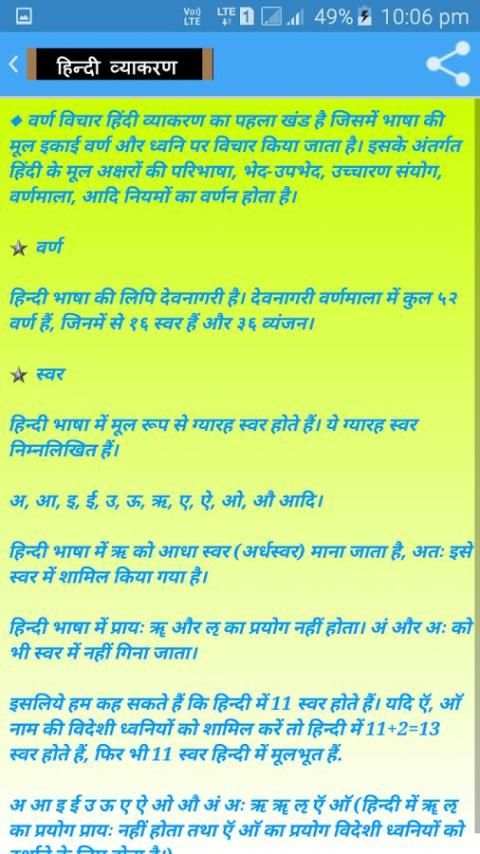 Vo)) LTE LTE 1 49% 10:06 pm
हिन्दी व्याकरण
◆ वर्ण विचार हिंदी व्याकरण का पहला खंड है जिसमें भाषा की
मूल इकाई वर्ण और ध्वनि पर विचार किया जाता है। इसके अंतर्गत
हिंदी के मूल अक्षरों की परिभाषा, भेद-उपभेद, उच्चारण संयोग,
वर्णमाला, आदि नियमों का वर्णन होता है।
★ वर्ण
हिन्दी भाषा की लिपि देवनागरी है। देवनागरी वर्णमाला में कुल ५२
वर्ण हैं, जिनमें से १६ स्वर हैं और ३६ व्यंजन।
★ स्वर
हिन्दी भाषा में मूल रूप से ग्यारह स्वर होते हैं। ये ग्यारह स्वर
निम्नलिखित हैं।
अ, आ, इ, ई, उ, ऊ, ऋ, ए, ऐ, ओ, औ आदि।
हिन्दी भाषा में ऋ को आधा स्वर (अर्धस्वर) माना जाता है, अतः इसे
स्वर में शामिल किया गया है।
हिन्दी भाषा में प्रायः ॠ और ऌ का प्रयोग नहीं होता। अं और अः को
भी स्वर में नहीं गिना जाता।
इसलिये हम कह सकते हैं कि हिन्दी में 11 स्वर होते हैं। यदि ऍ, ऑ
नाम की विदेशी ध्वनियों को शामिल करें तो हिन्दी में 11+2=13
स्वर होते हैं, फिर भी 11 स्वर हिन्दी में मूलभूत हैं.
अ आ इ ई उ ऊ ए ऐ ओ औ अं अः ऋ ॠ ऌ ऍ ऑ (हिन्दी में ॠ ऌ
का प्रयोग प्रायः नहीं होता तथा ऍ ऑ का प्रयोग विदेशी ध्वनियों को